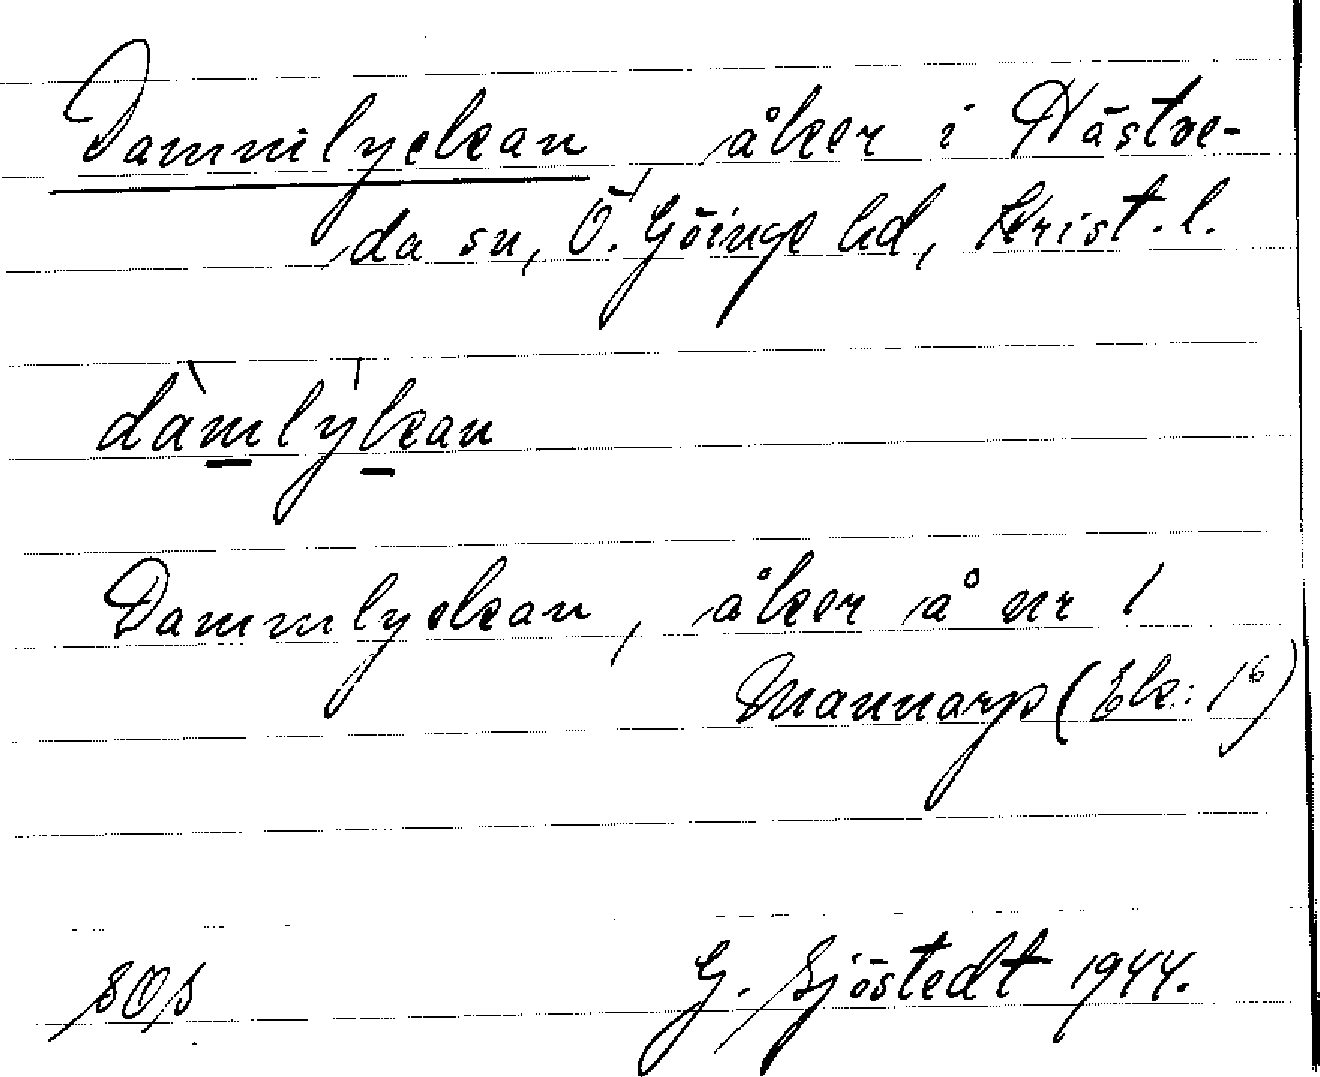 Dammlyckan, åker i Hästve-
da sn, Ö. Göinge hd, Krist. l.
dàmlýkan
Dammlyckan, åker å nr 1
Mannarp (Ek: 1⁶)
SOS
G. Sjöstedt 1944.